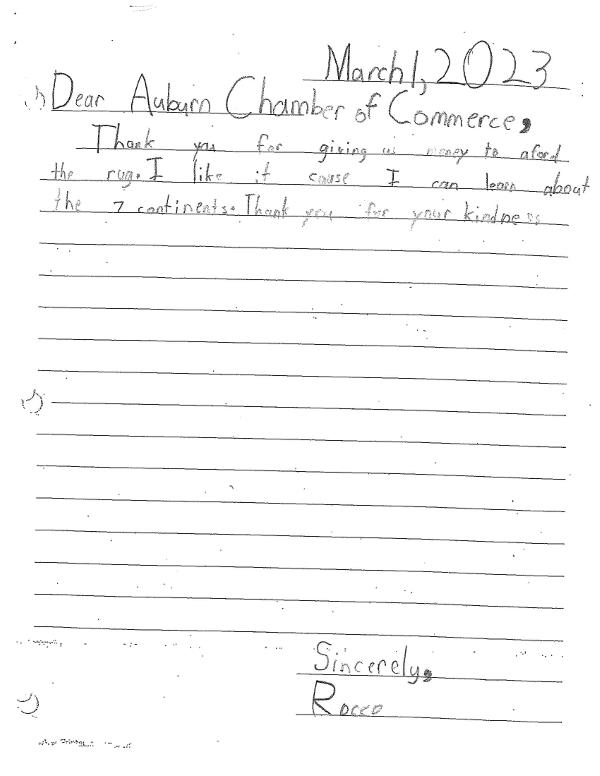 March 1, 2023
Dear Auburn Chamber of Commerce,
Thank you for giving us money to aford
the rug. I like it cause I can learn about
the 7 continents. Thank you for your kindness
Sincerely,
Rocco